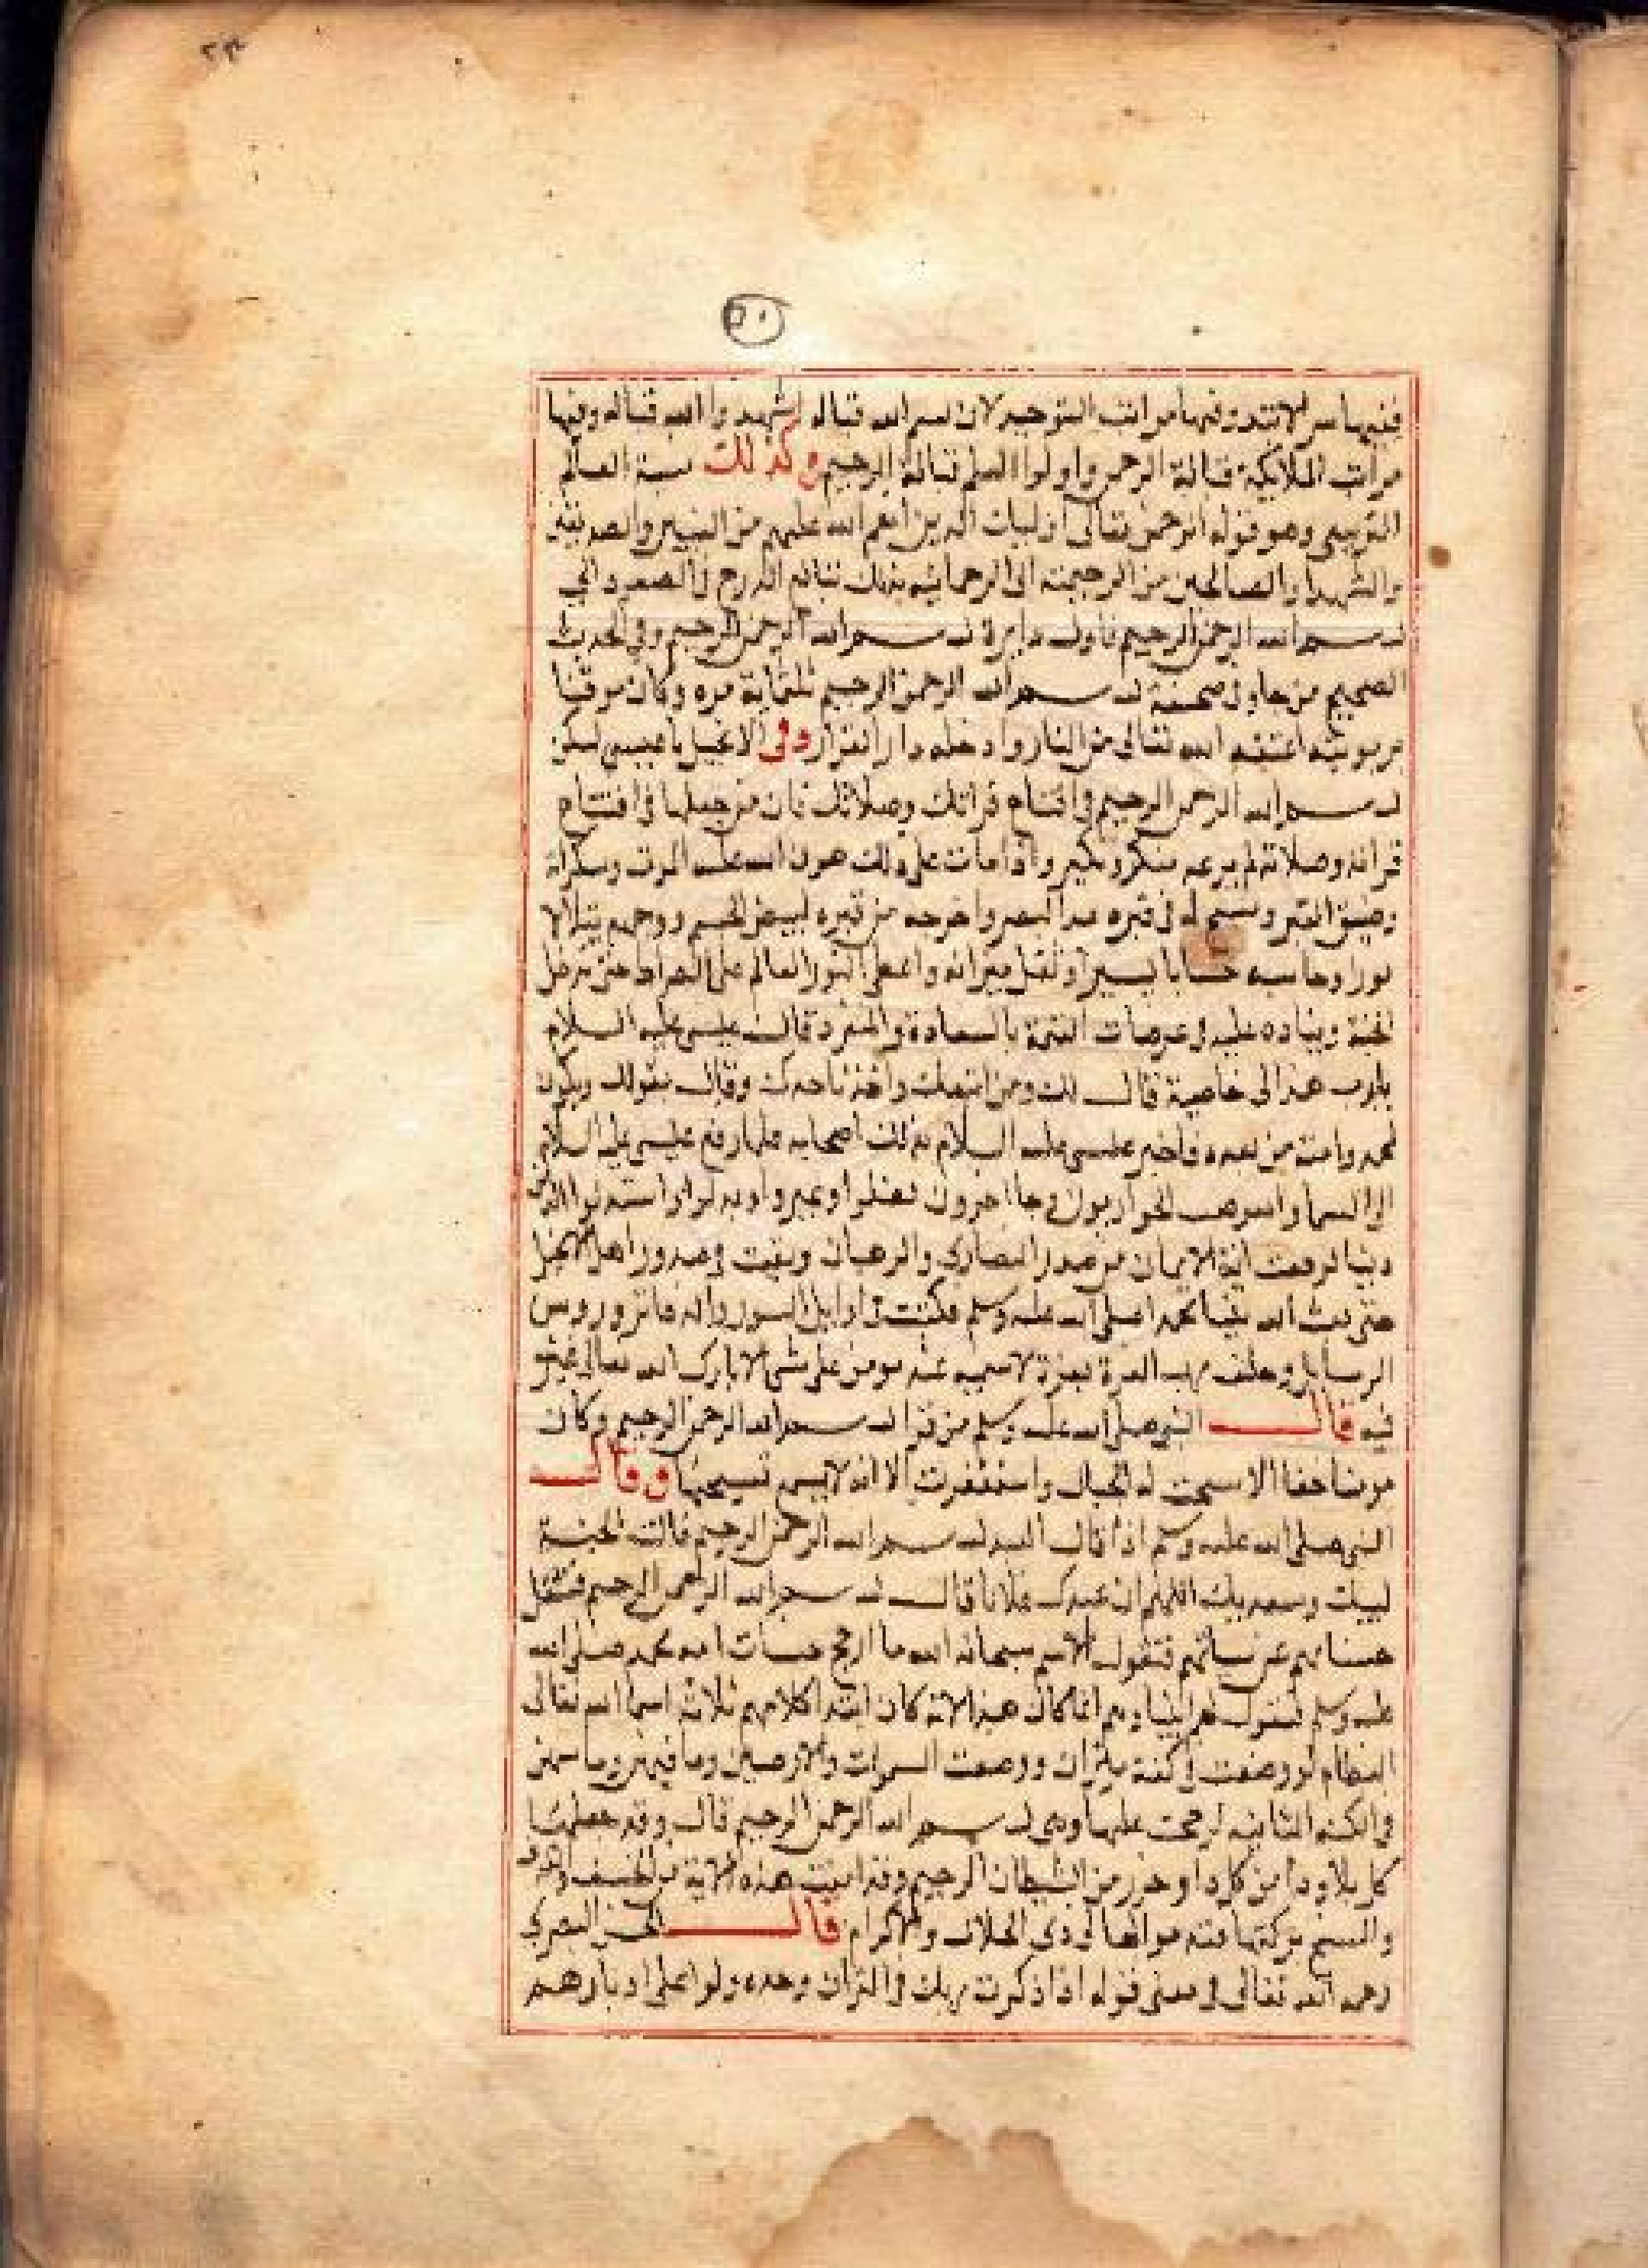 ٢٣
٥١
فيها سر الابتدا وفيها مراتب التوحيد لان بسم الله قبالة شهد الله قبالة وفيها
مراتب الملايكة قبالة الرحمن واولوا العلم قبالة الرحيم وكذلك نسبة العالم
وهو قوله الرحمن تعالى اوليك الذين انعم الله عليهم من النبيين والصديقين
والشهدا والصالحين من الرحيمية الى الرحمانية بذلك الدرج في الصعود الى
بسم الله الرحمن الرحيم فاول دايرة بسم الله الرحمن الرحيم وفي الحديث
الصحيح من جا وفي صحيفته بسم الله الرحمن الرحيم ثلثماية مره وكان موقنا
بربوبيته اعتقه الله تعالى من النار وادخله دار القرار وفي الانجيل يا عيسى لتكن
بسم الله الرحمن الرحيم في افتتاح قراتك وصلاتك فان من جعلها في افتتاح
قراته وصلاته لم يرعه منكر ونكير واذا مات على ذلك هون الله عليه الموت وسكراته
وضيق القبر وفسح له في قبره مد البصر واخرجه من قبره ابيض الجسم ووجهه يتلالا
نورا وحاسبه حسابا يسيرا وثقل ميزانه واعطي النور العالم على الصراط حتى يدخل
الجنة وينادي عليه في عرصات القيمة بالسعادة والمغفرة قالت عيسى عليه السلام
يارب هذا لي خاصية قال لك ومن اتبعك واخذ ماخدك وقال بقولك ويكون
لمحمد وامته من بعده فاخبر عيسى عليه السلام بذلك اصحابه فلما رفع عيسى عليه السلام
الى السما وانقرض الحواريون وجا اخرون فضلوا وغيروا وبدلوا واستبدلوا بالدين
دنيا فرفعت اية الايمان من صدر النصارى والرهبان وبقيت في صدور اهل الانجيل
حتى بعث الله نبينا محمدا صلى الله عليه وسلم فكتبت في اوايل السور والدفاتر وروس
الرسايل وحلف رب العزة بعزته لا يسميه عبد مومن على شي الا بارك الله تعالى
فيه قال النبي صلى الله عليه وسلم من قرا بسم الله الرحمن الرحيم وكان
مومنا حقا الا سبحت له الجبال واستغفرت الا انه لا يسمع تسبيحها وقال
النبي صلى الله عليه وسلم اذا قال العبد بسم الله الرحمن الرحيم قالت الجنة
لبيك وسعديك اللهم ان عبدك فلانا قال بسم الله الرحمن الرحيم فتثقل
حسناتهم عن سياتهم فتقول الامم سبحان الله ما ارجح حسنات امة محمد صلى الله
عليه وسلم فتقول لهم انبياوهم انما كان هذا لانه كان ابتدا كلامهم ثلاثة اسما الله تعالى
العظام لو وضعت في كفة ميزان ووضعت السموات والارضين وما فيهن وما بينهن
في الكفة الثانية لرجحت عليها وهي بسم الله الرحمن الرحيم قال وقد جعلتها
كل بلا ودا من كل دا وحرز من الشيطان الرجيم وقد امنت هذه الامة من الخسف
والمسخ ببركتها ذي الجلال والاكرام قال الحسن البصري
رحمه الله تعالى في معنى قوله اذا ذكرت ربك في القران وحده ولوا على ادبارهم